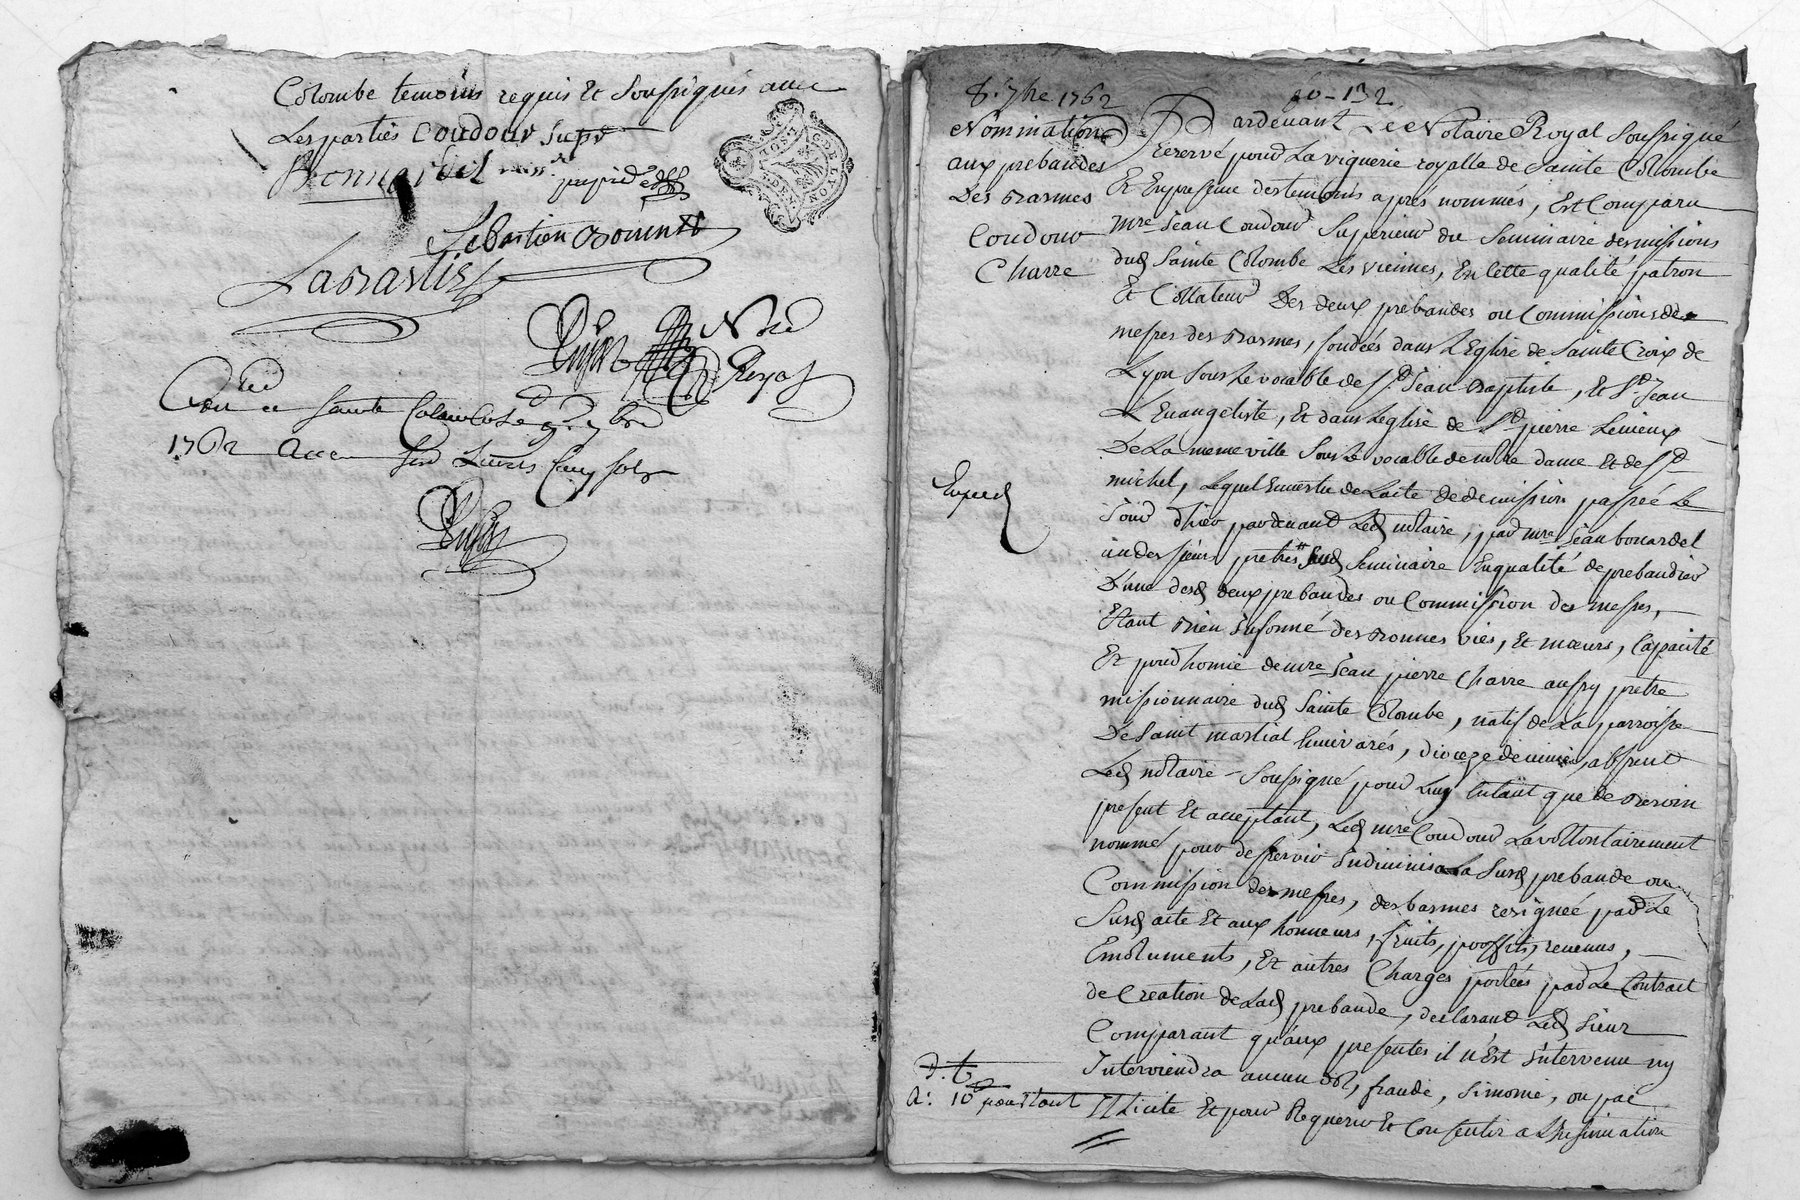 Colombe temoins requis Et Soussignés avec
Les parties Coudour Supr
Bonnardel
Sebastien
Labastie
Nre
Royal
Sainte Colombe 7bre
1762
GEN. DE LYON
8. 7bre 1762
Nomination
aux prebandes
Des Basmes
Coudour
Charre
Expedd
Pardevant Le Notaire Royal Soussigné
reservé pour La viguerie royalle de Sainte Colombe
Et En presence des temoins apres nommés, Est Comparu
mre Jean Coudour Superieur du Seminaire des missions
dud Sainte Colombe Les viennes, En Cette qualité patron
Et Collateur Des deux prebandes ou Commissions de
messes des Basmes, fondées dans L'Eglise de Sainte Croix de
Lyon Sous Le vocable de St Jean Baptiste, Et St Jean
L'Evangeliste, Et dans Leglise de St pierre Levieux
De La meme ville Sous Le vocable de notre dame Et de St
michel, Lequel En vertu de Lacte de demission passée Le
Jour d'hier pardevant Led notaire, par mre Jean bonardel
un des sieurs pretres Susd Seminaire En qualité de prebandier
D'une desd deux prebandes ou Commission de messes,
Etant Bien Informé des Bonnes vies, Et mœurs, Capacité
Et prud'homie de mre Jean pierre Charre aussy pretre
missionnaire dud Sainte Colombe, natif de La parroisse
De Saint martial En vivarés, dioceze de vienne, absent
Led notaire Soussigné pour Luy Entant que de Besoin
present Et acceptant, Led mre Coudour La vollontairement
nommé pour desservir Indivinis a La Susd prebande ou
Commission de messes, des basmes resignée par Le
Susd acte Et aux honneurs, fruits, proffits, revenus,
Emoluments, Et autres Charges portées par Le Contract
de Creation de Lad prebande, declarant Led Sieur
Comparant qu'aux presentes il n'Est Intervenu ny
Interviendra aucun dol, fraude, Simonie, ou pac
Illicite Et pour Requerir Et Consentir a L'Insinuation